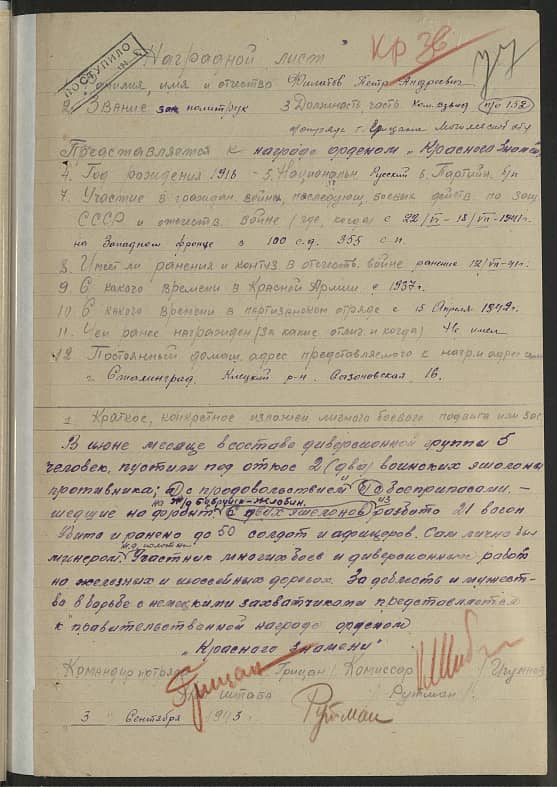 ПОСТУПИЛО
Кр Зв
Наградной лист
Фамилия, имя и отчество Филатов Петр Андреевич
2. Звание зам политрук 3. Должность, часть Ком. взвод п/о 152
Гришана Могилевской обл
Представляется к награде орденом „Красного Знамени
4. Год рождения 1916 5. Национальн. Русский 6. Партийн. б/п
7. Участие в граждан. войне, последующ. боевых действ. по защ.
СССР и отечеств. войне (где, когда) с 22/VI - 18/VII - 1941г.
на Западном фронте в 100 с.д. 355 с.п.
8. Имеет ли ранения и контуз в отечеств. войне ранение 12/VII-41г.
9. С какого времени в Красной Армии с 1937г.
10. С какого времени в партизанском отряде с 15 Апреля 1942г.
11. Чем ранее награжден (за какие отлич. и когда) Не имел
12. Постоянный домаш. адрес представляемого к награ. и адрес
г. Сталинград. Клецкий р-н. Сазоновская 16.
1 Краткое, конкретное изложен личного боевого подвига или зас
В июне месяце в составе диверсионной группы 5
человек, пустили под откос 2 (два) воинских эшелона
противника; 1) с продовольствием 1) с боеприпасами, –
на ж/д Бобруйск-Жлобин. из
шедшие на фронт. С двух эшелонов разбито 21 вагон
Убито и ранено до 50 солдат и афицеров. Сам лично был
минером. Участник многих боев и диверсионных работ
на железных и шоссейных дорогах. За доблесть и мужест-
во в борьбе с немецкими захватчиками представляется
к правительственной награде орденом
„Красного Знамени"
Командир Гришан / Гришан / Комиссар
штаба Рутман / Рутман /
3 Сентября 1943